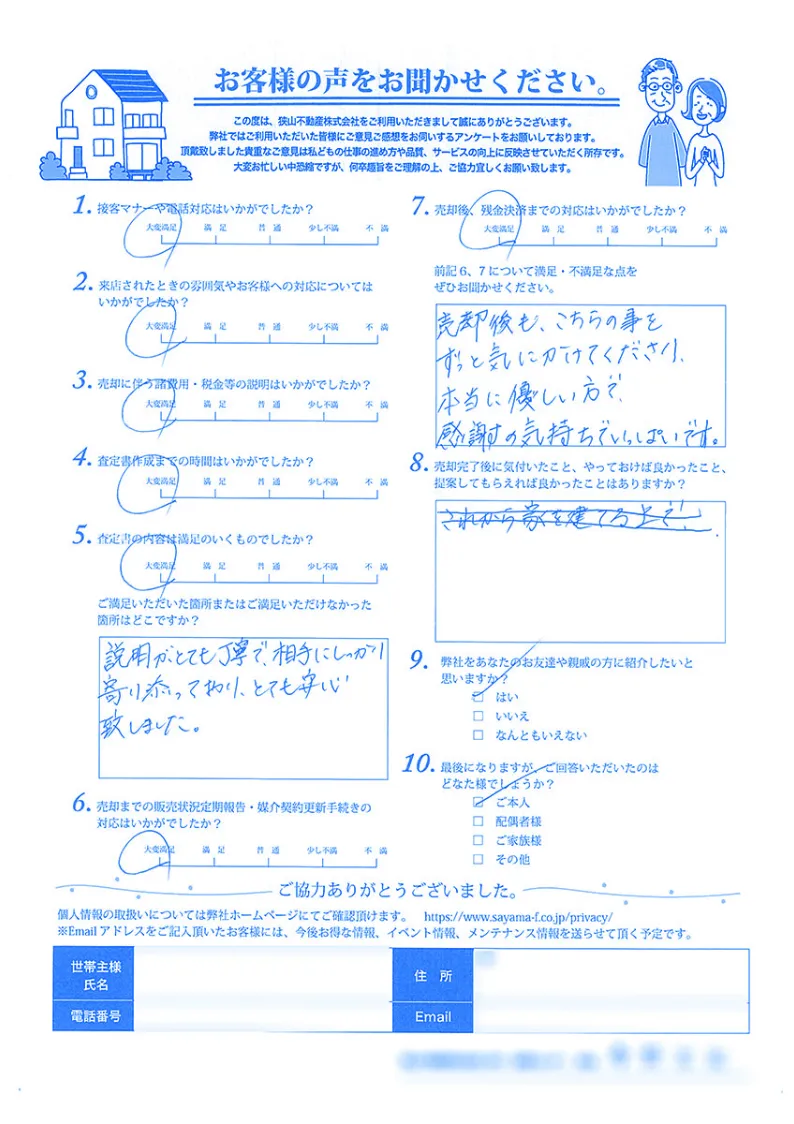 お客様の声をお聞かせください。
この度は、狭山不動産株式会社をご利用いただきまして誠にありがとうございます。
弊社ではご利用いただいた皆様にご意見ご感想をお伺いするアンケートをお願いしております。
頂戴致しました貴重なご意見は私どもの仕事の進め方や品質、サービスの向上に反映させていただく所存です。
大変お忙しい中恐縮ですが、何卒趣旨をご理解の上、ご協力宜しくお願い致します。
1. 接客マナーや電話対応はいかがでしたか？
大変満足 満足 普通 少し不満 不満
2. 来店されたときの雰囲気やお客様への対応については
いかがでしたか？
大変満足 満足 普通 少し不満 不満
3. 売却に伴う諸費用・税金等の説明はいかがでしたか？
大変満足 満足 普通 少し不満 不満
4. 査定書作成までの時間はいかがでしたか？
大変満足 満足 普通 少し不満 不満
5. 査定書の内容は満足のいくものでしたか？
大変満足 満足 普通 少し不満 不満
ご満足いただいた箇所またはご満足いただけなかった
箇所はどこですか？
説明がとても丁寧で、相手にしっかり
寄り添っており、とても安心
致しました。
6. 売却までの販売状況定期報告・媒介契約更新手続きの
対応はいかがでしたか？
大変満足 満足 普通 少し不満 不満
7. 売却後、残金決済までの対応はいかがでしたか？
大変満足 満足 普通 少し不満 不満
前記6、7について満足・不満足な点を
ぜひお聞かせください。
売却後も、こちらの事を
ずっと気にかけてくださり、
本当に優しい方で、
感謝の気持ちでいっぱいです。
8. 売却完了後に気付いたこと、やっておけば良かったこと、
提案してもらえれば良かったことはありますか？
これから家を建てる上で、
9. 弊社をあなたのお友達や親戚の方に紹介したいと
思いますか？
□ はい
□ いいえ
□ なんともいえない
10. 最後になりますが、ご回答いただいたのは
どなた様でしょうか？
□ ご本人
□ 配偶者様
□ ご家族様
□ その他
ご協力ありがとうございました。
個人情報の取扱いについては弊社ホームページにてご確認頂けます。 https://www.sayama-f.co.jp/privacy/
※Emailアドレスをご記入頂いたお客様には、今後お得な情報、イベント情報、メンテナンス情報を送らせて頂く予定です。
世帯主様
氏名
住所
電話番号
Email